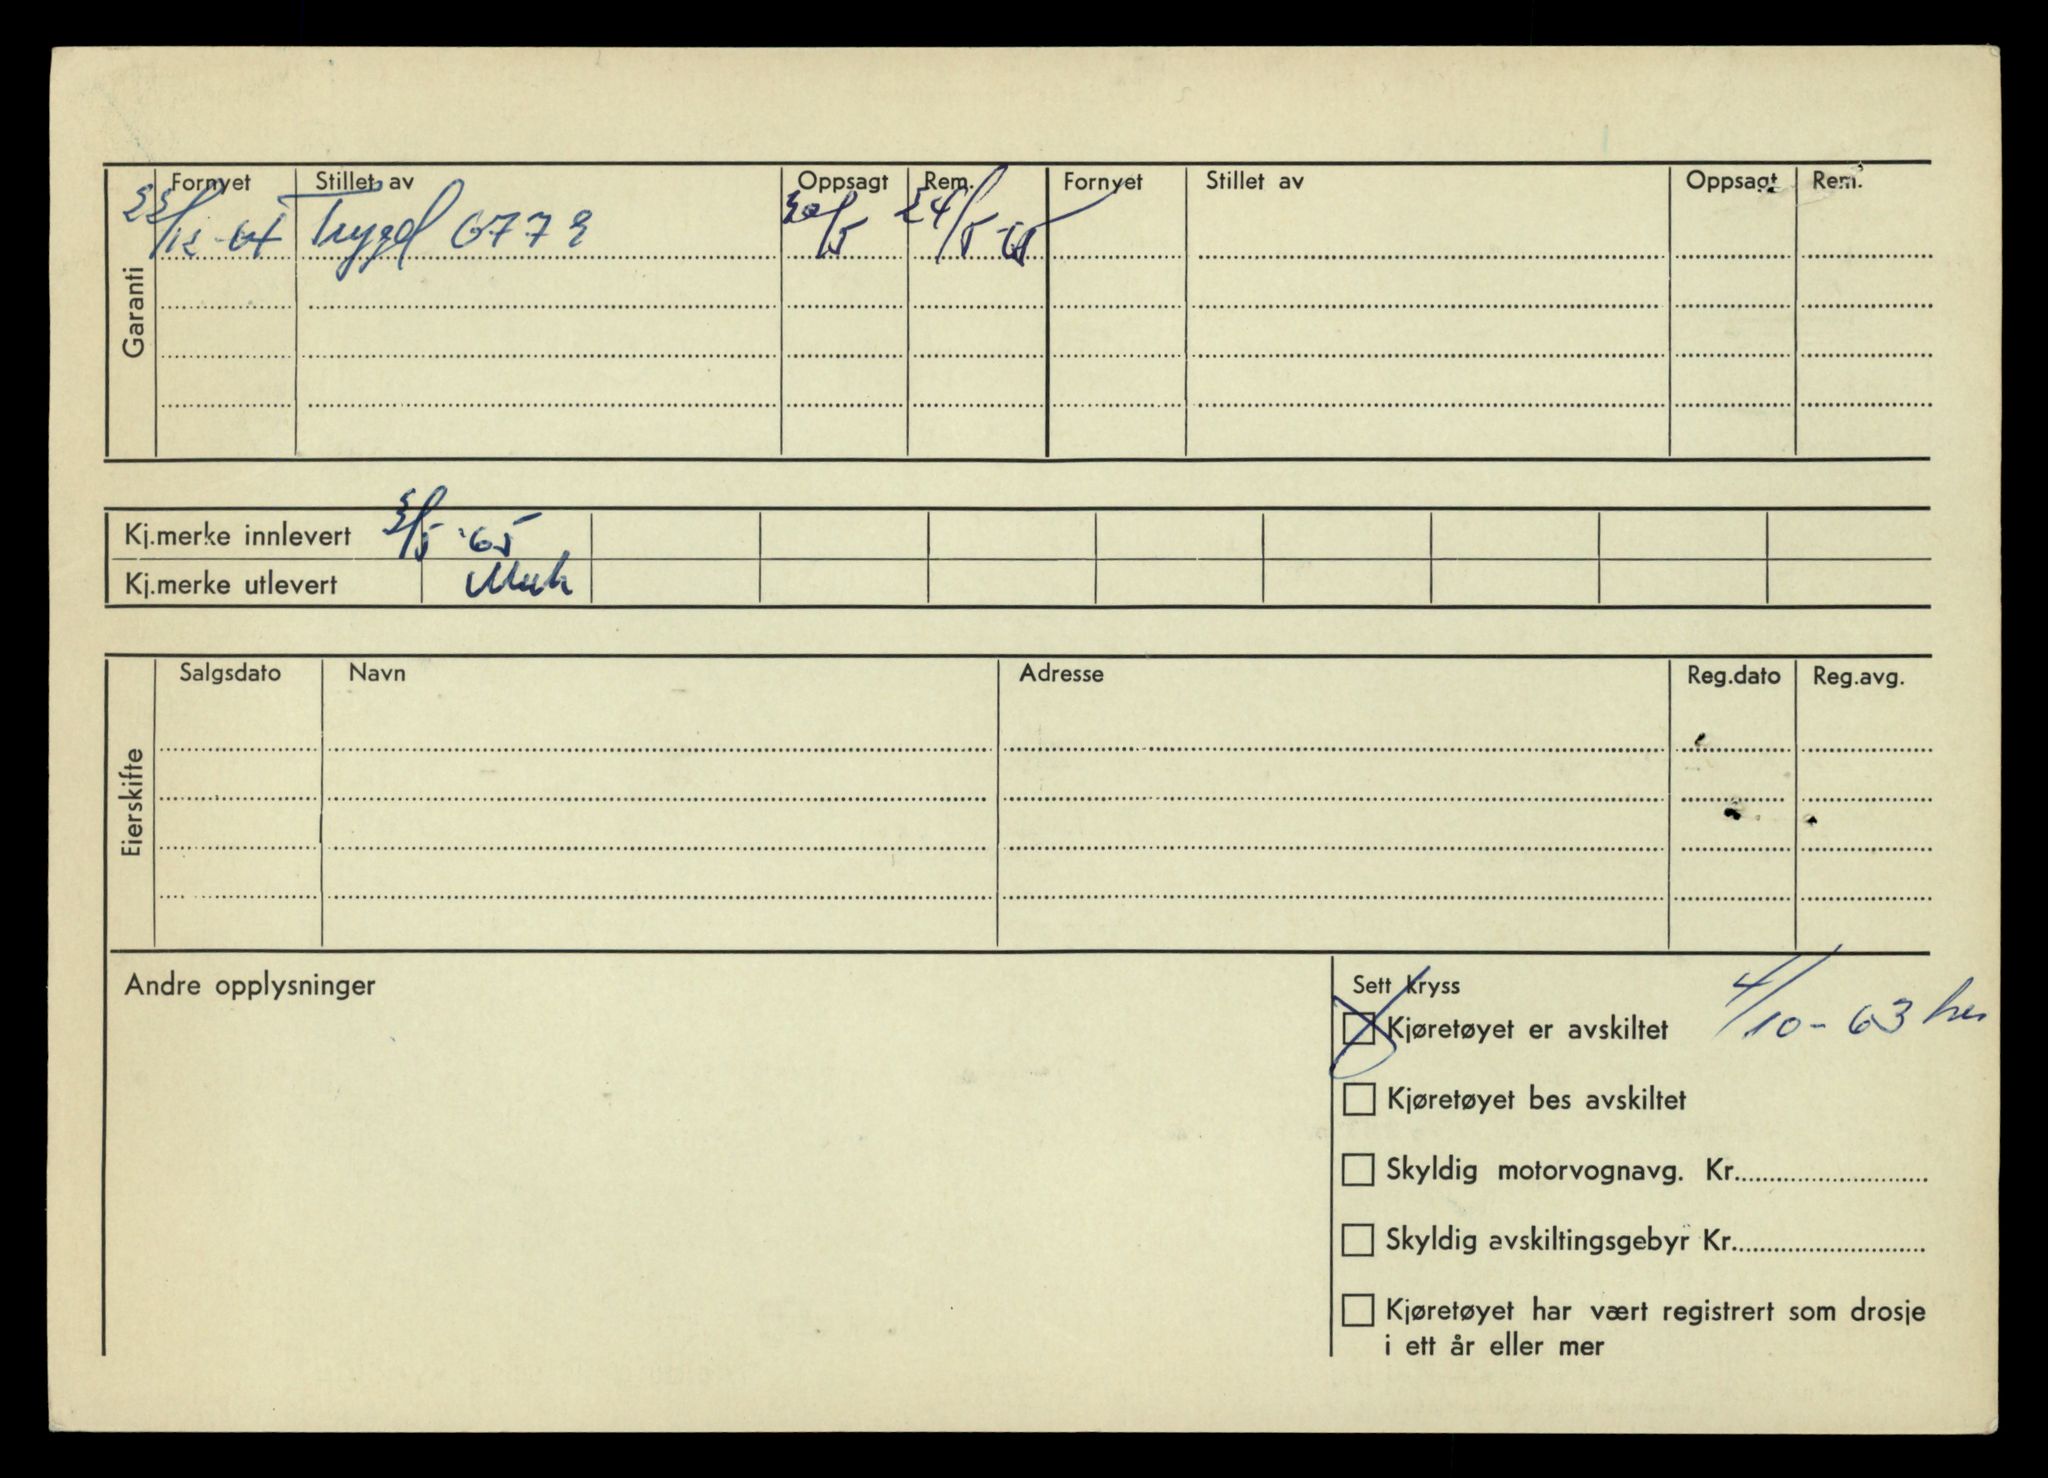 Garanti
Fornyet Stillet av Oppsagt Rem. Fornyet Stillet av Oppsagt Rem.
Trygd 6772 20/5 24/5-65
Kj.merke innlevert /5 65
Kj.merke utlevert
Eierskifte
Salgsdato Navn Adresse Reg.dato Reg.avg.
Andre opplysninger
Sett kryss
Kjøretøyet er avskiltet 4/10-63
Kjøretøyet bes avskiltet
Skyldig motorvognavg. Kr.
Skyldig avskiltingsgebyr Kr.
Kjøretøyet har vært registrert som drosje
i ett år eller mer